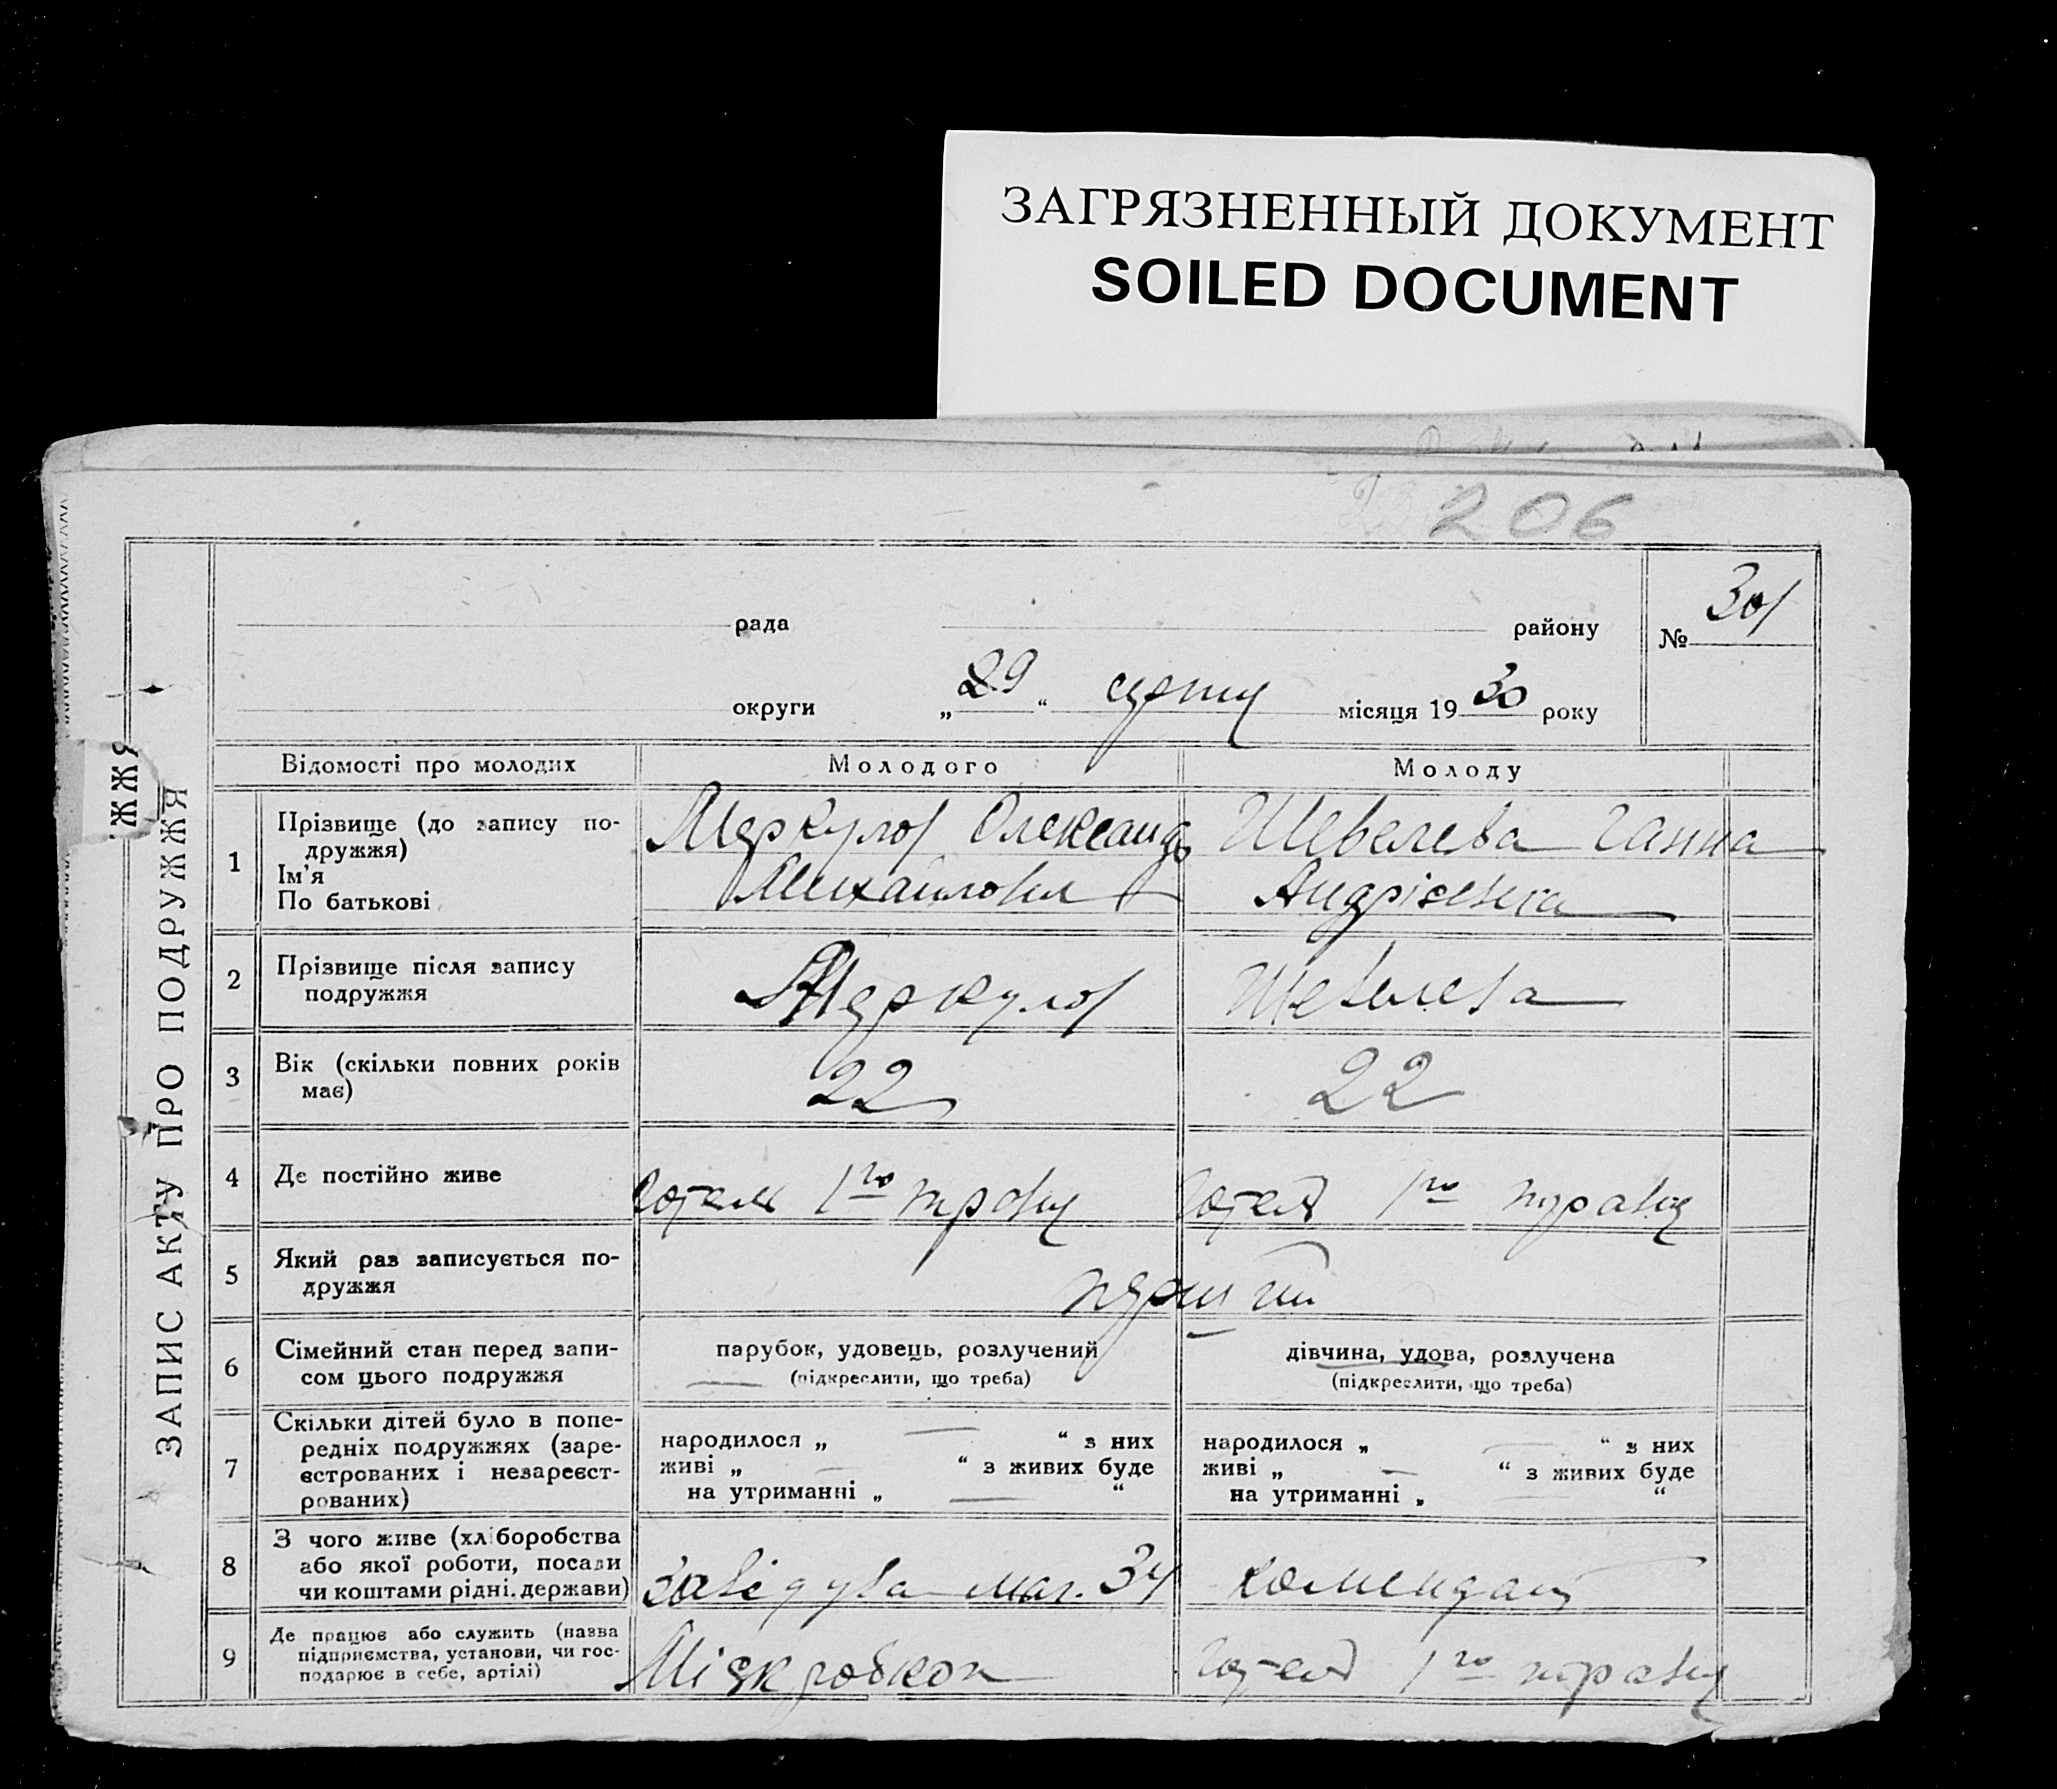 ЗАГРЯЗНЕННЫЙ ДОКУМЕНТ
SOILED DOCUMENT
206
рада району № 301
округи „ 29 “ серпня місяця 19 30 року
ЖЖЯ
ЗАПИС АКТУ ПРО ПОДРУЖЖЯ
Відомості про молодих Молодого Молоду
1 Прізвище (до запису по-
дружжя)
Ім'я
По батькові
Меркулов Олександр
Михайлович
Шевелева Ганна
Андріевна
2 Прізвище після запису
подружжя
Меркулов
Шевелева
3 Вік (скільки повних років
має)
22
22
4 Де постійно живе
готель 1го травня
готель 1го травня
5 Який раз записується по-
дружжя
перший
6 Сімейний стан перед запи-
сом цього подружжя
парубок, удовець, розлучений
(підкреслити, що треба)
дівчина, удова, розлучена
(підкреслити, що треба)
7 Скільки дітей було в попе-
редніх подружжях (заре-
єстрованих і незареєст-
рованих)
народилося „ — “ з них
живі „ — “ з живих буде
на утриманні „ — “
народилося „ — “ з них
живі „ — “ з живих буде
на утриманні „ — “
8 З чого живе (хліборобства
або якої роботи, посади
чи коштами рідні. держави)
завідува маг. 34
комендант
9 Де працює або служить (назва
підприємства, установи, чи гос-
подарює в себе, артілі)
Міськробкоп
готель 1го травня